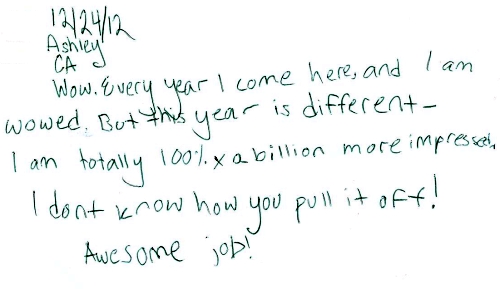 12/24/12
Ashley
CA
Wow. Every year I come here, and I am
wowed. But this year is different -
I am totally 100% x a billion more impressed,
I dont know how you pull it off!
Awesome job!